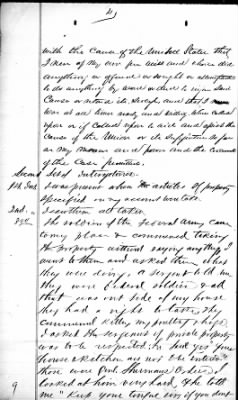 4
with the Cause of the United States that
I never of my own free will and choice did
anything or offered or sought or attempted
to do anything by word or deed to injure said
Cause or retard its success and that I
was at all times ready and willing when called
upon or if called upon to aid and assist the
Cause of the Union or its supporters so far
as my means and power and the circumstances
of the Case permitted.
Second Set of Interrogatories
I was present when the articles of property
specified in my account were taken
I saw them all taken
The soldiers of the Federal army came
to my place & commenced taking
the property without saying anything I
went to them and asked them what
they were doing, a Sergeant told me
they were Federal soldiers & all
that was out side of my house
they had a right to take, they
commenced killing my poultry & hogs,
I asked the sergeant if private property
was to be respected. he said yes "your
house & kitchen are not to be entered"
those were Genl Shermans Orders I
looked at him very hard, & he told
me "Keep your temper sir if you don't
9